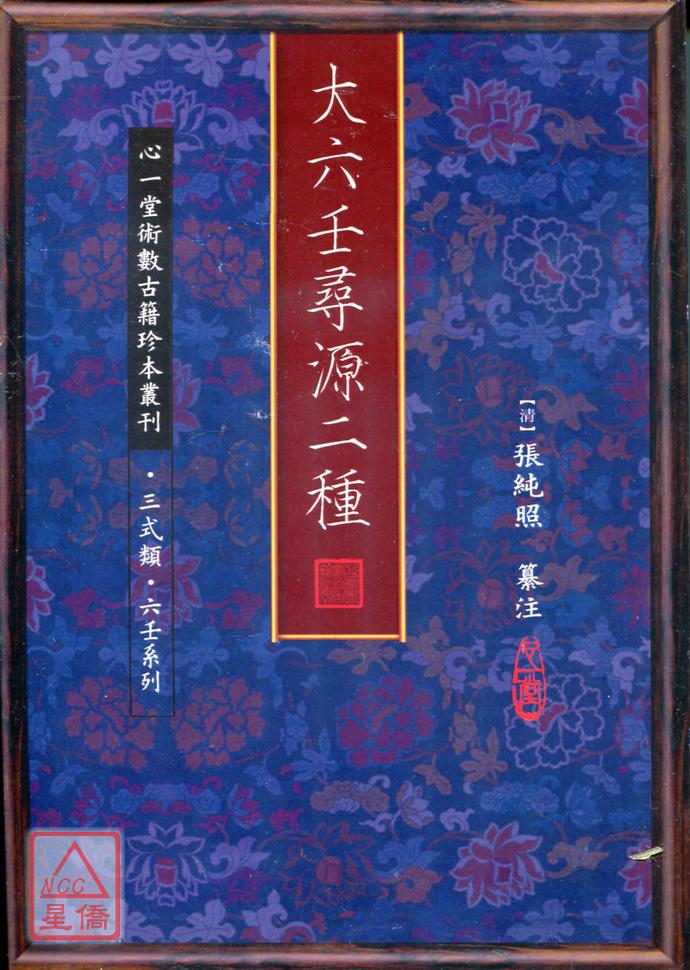 大六壬尋源二種
【清】張純照 纂注
心一堂術數古籍珍本叢刊
·三式類·六壬系列
心一堂
NCC
星僑